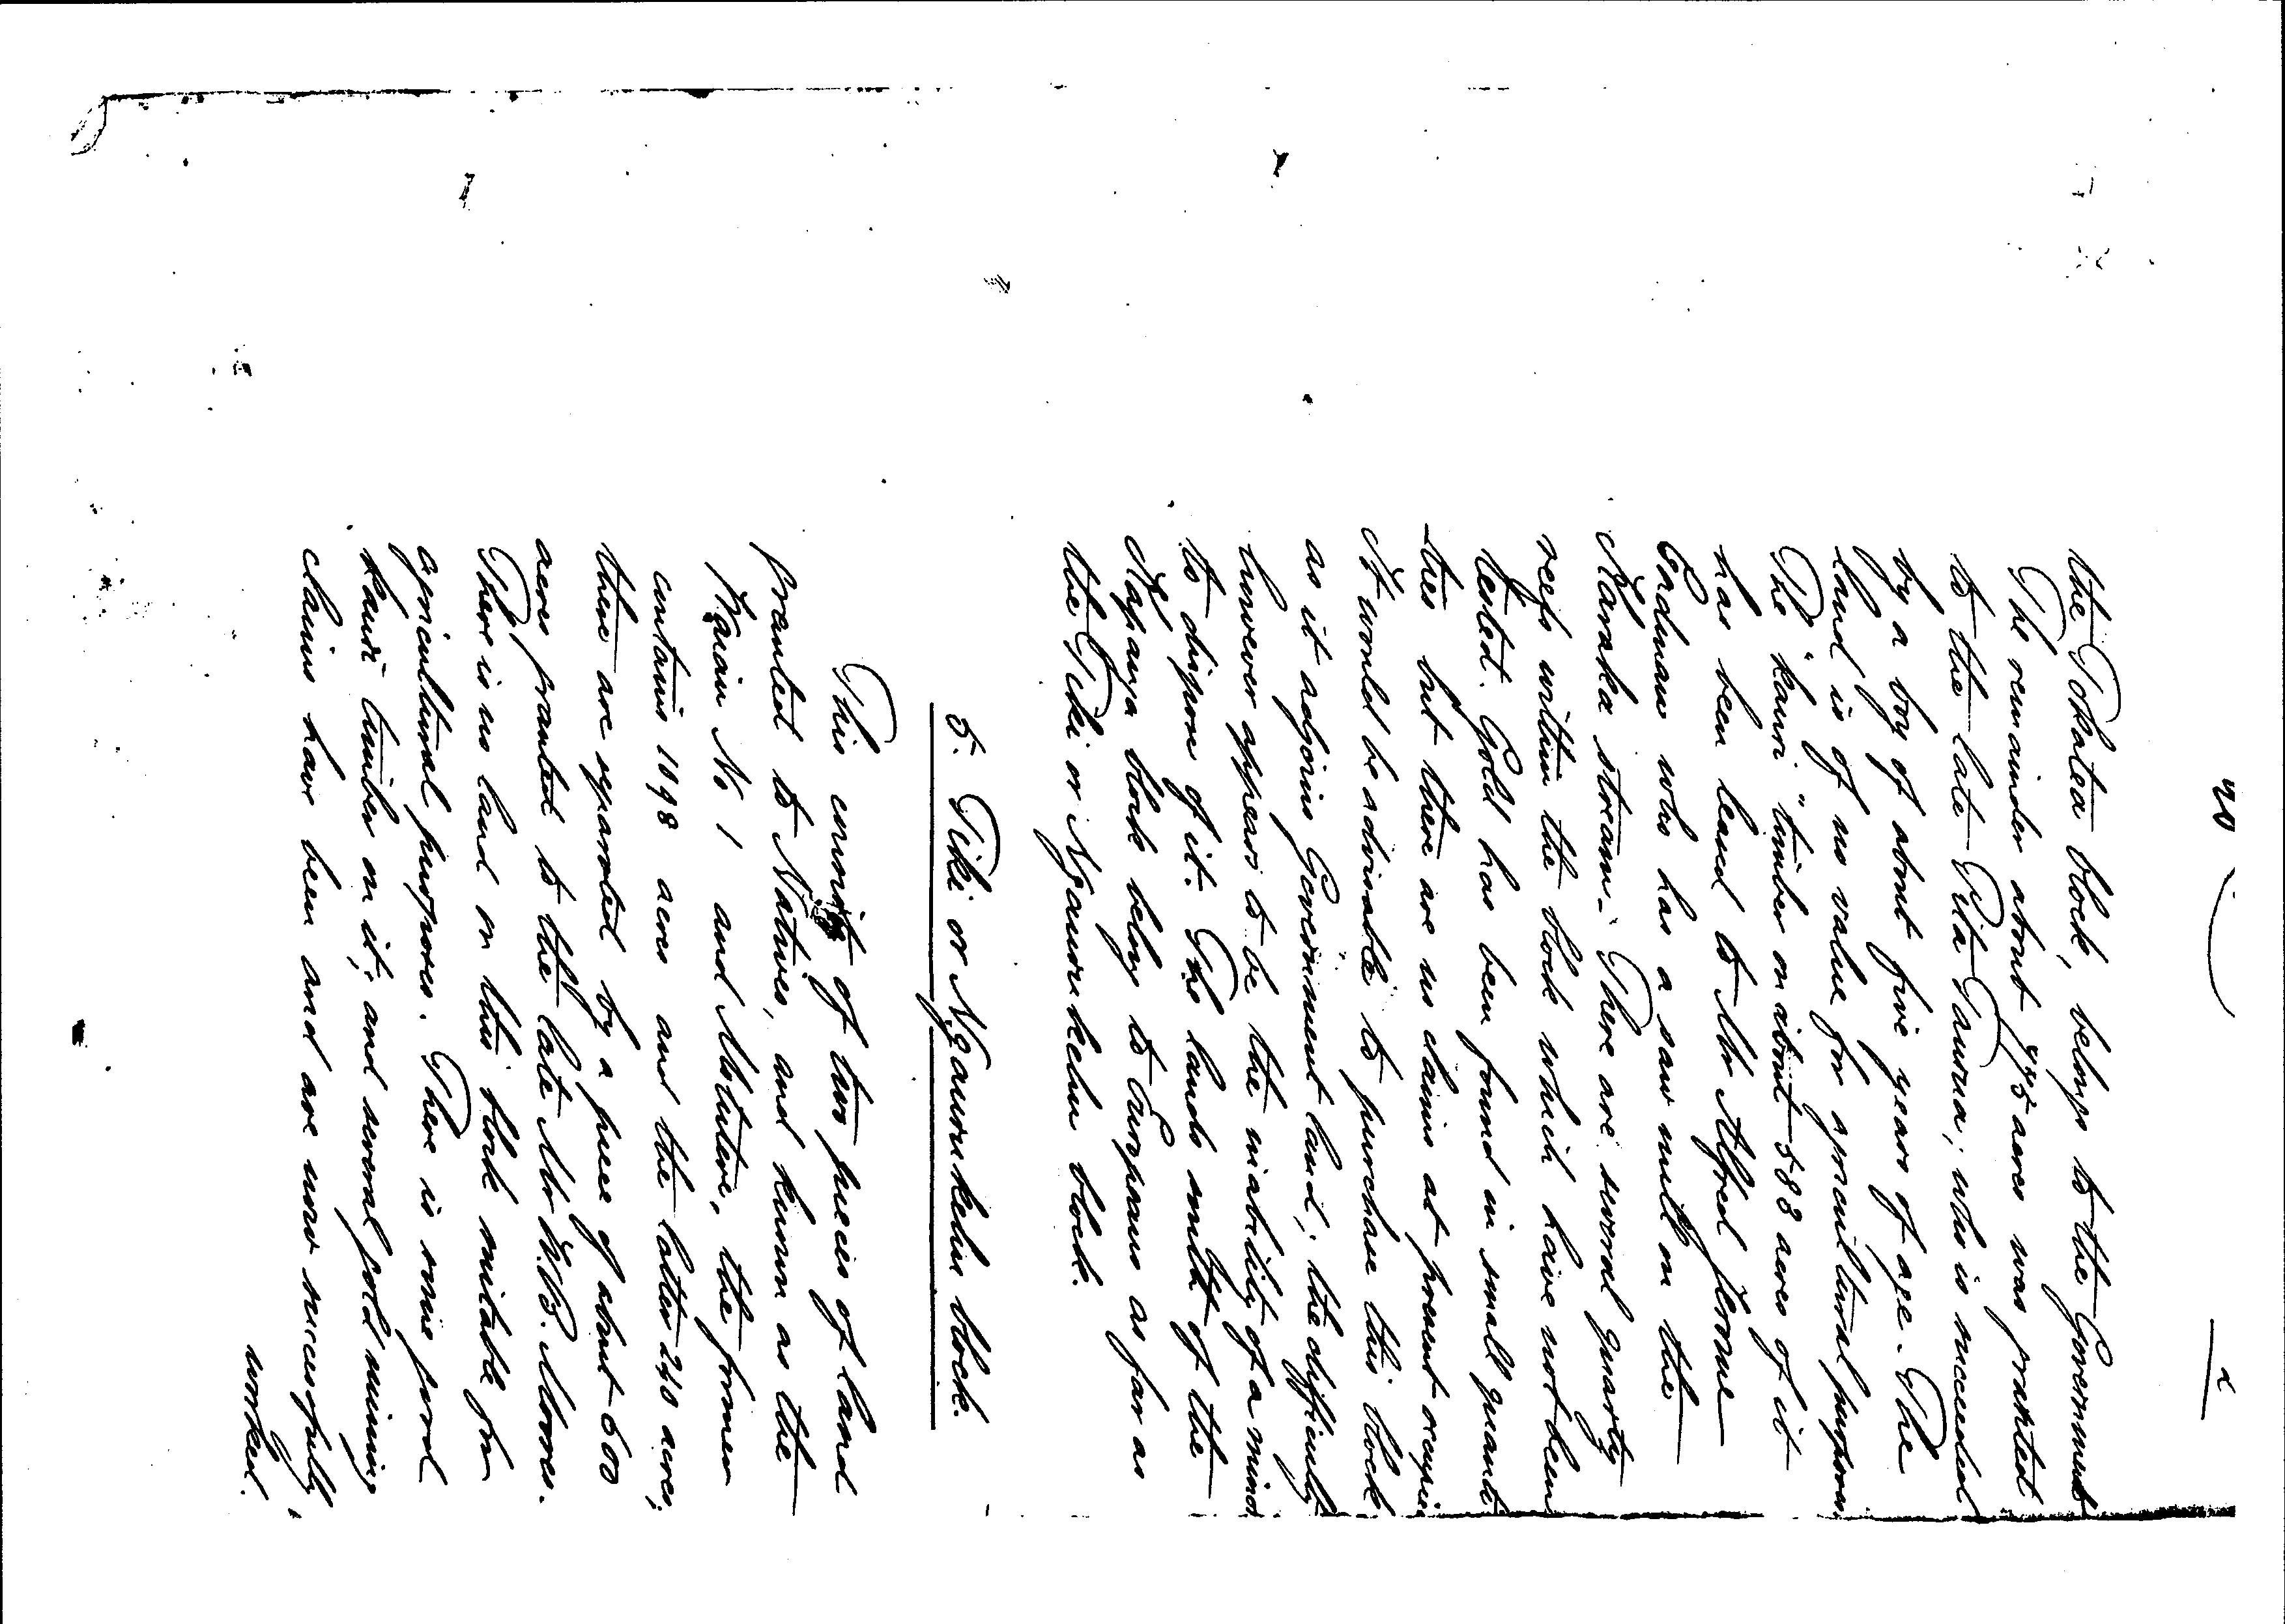 the Tokatea block, belongs to the Government
The remainder about 975 acres was granted
to the late Pita Taurua, who is succeeded
by a boy of about five years of age. The
land is of no value for agricultural purposes
The "kauri" timber on about 588 acres of it
has been leased to Mr Alfred Jerome
Cadman who has a saw mill on the
Waraka stream. There are several quartz
reefs within the block which have not been
tested. Gold has been found in small quanti
-ties but there are no claims at present occupied
It would be advisable to purchase this block
as it adjoins Government land, the difficulty
however appears to be the inability of a minor
to dispose of it. The lands south of the
Kapanga block belong to Europeans as far as
the Tiki or Ngaurukehu block.
5. Tiki or Ngaurukehu block.
This consists of two pieces of land
granted to Natives, and known as the
Waiau No 1 and Matutere, the former
contains 1098 acres and the latter 240 acres,
there are separated by a piece of about 600
acres granted to the late Mr W.B. Moores.
There is no land on this block suitable for
agricultural purposes. There is some good
kauri timber on it, and several gold mining
claims have been and are now successfully
worked.